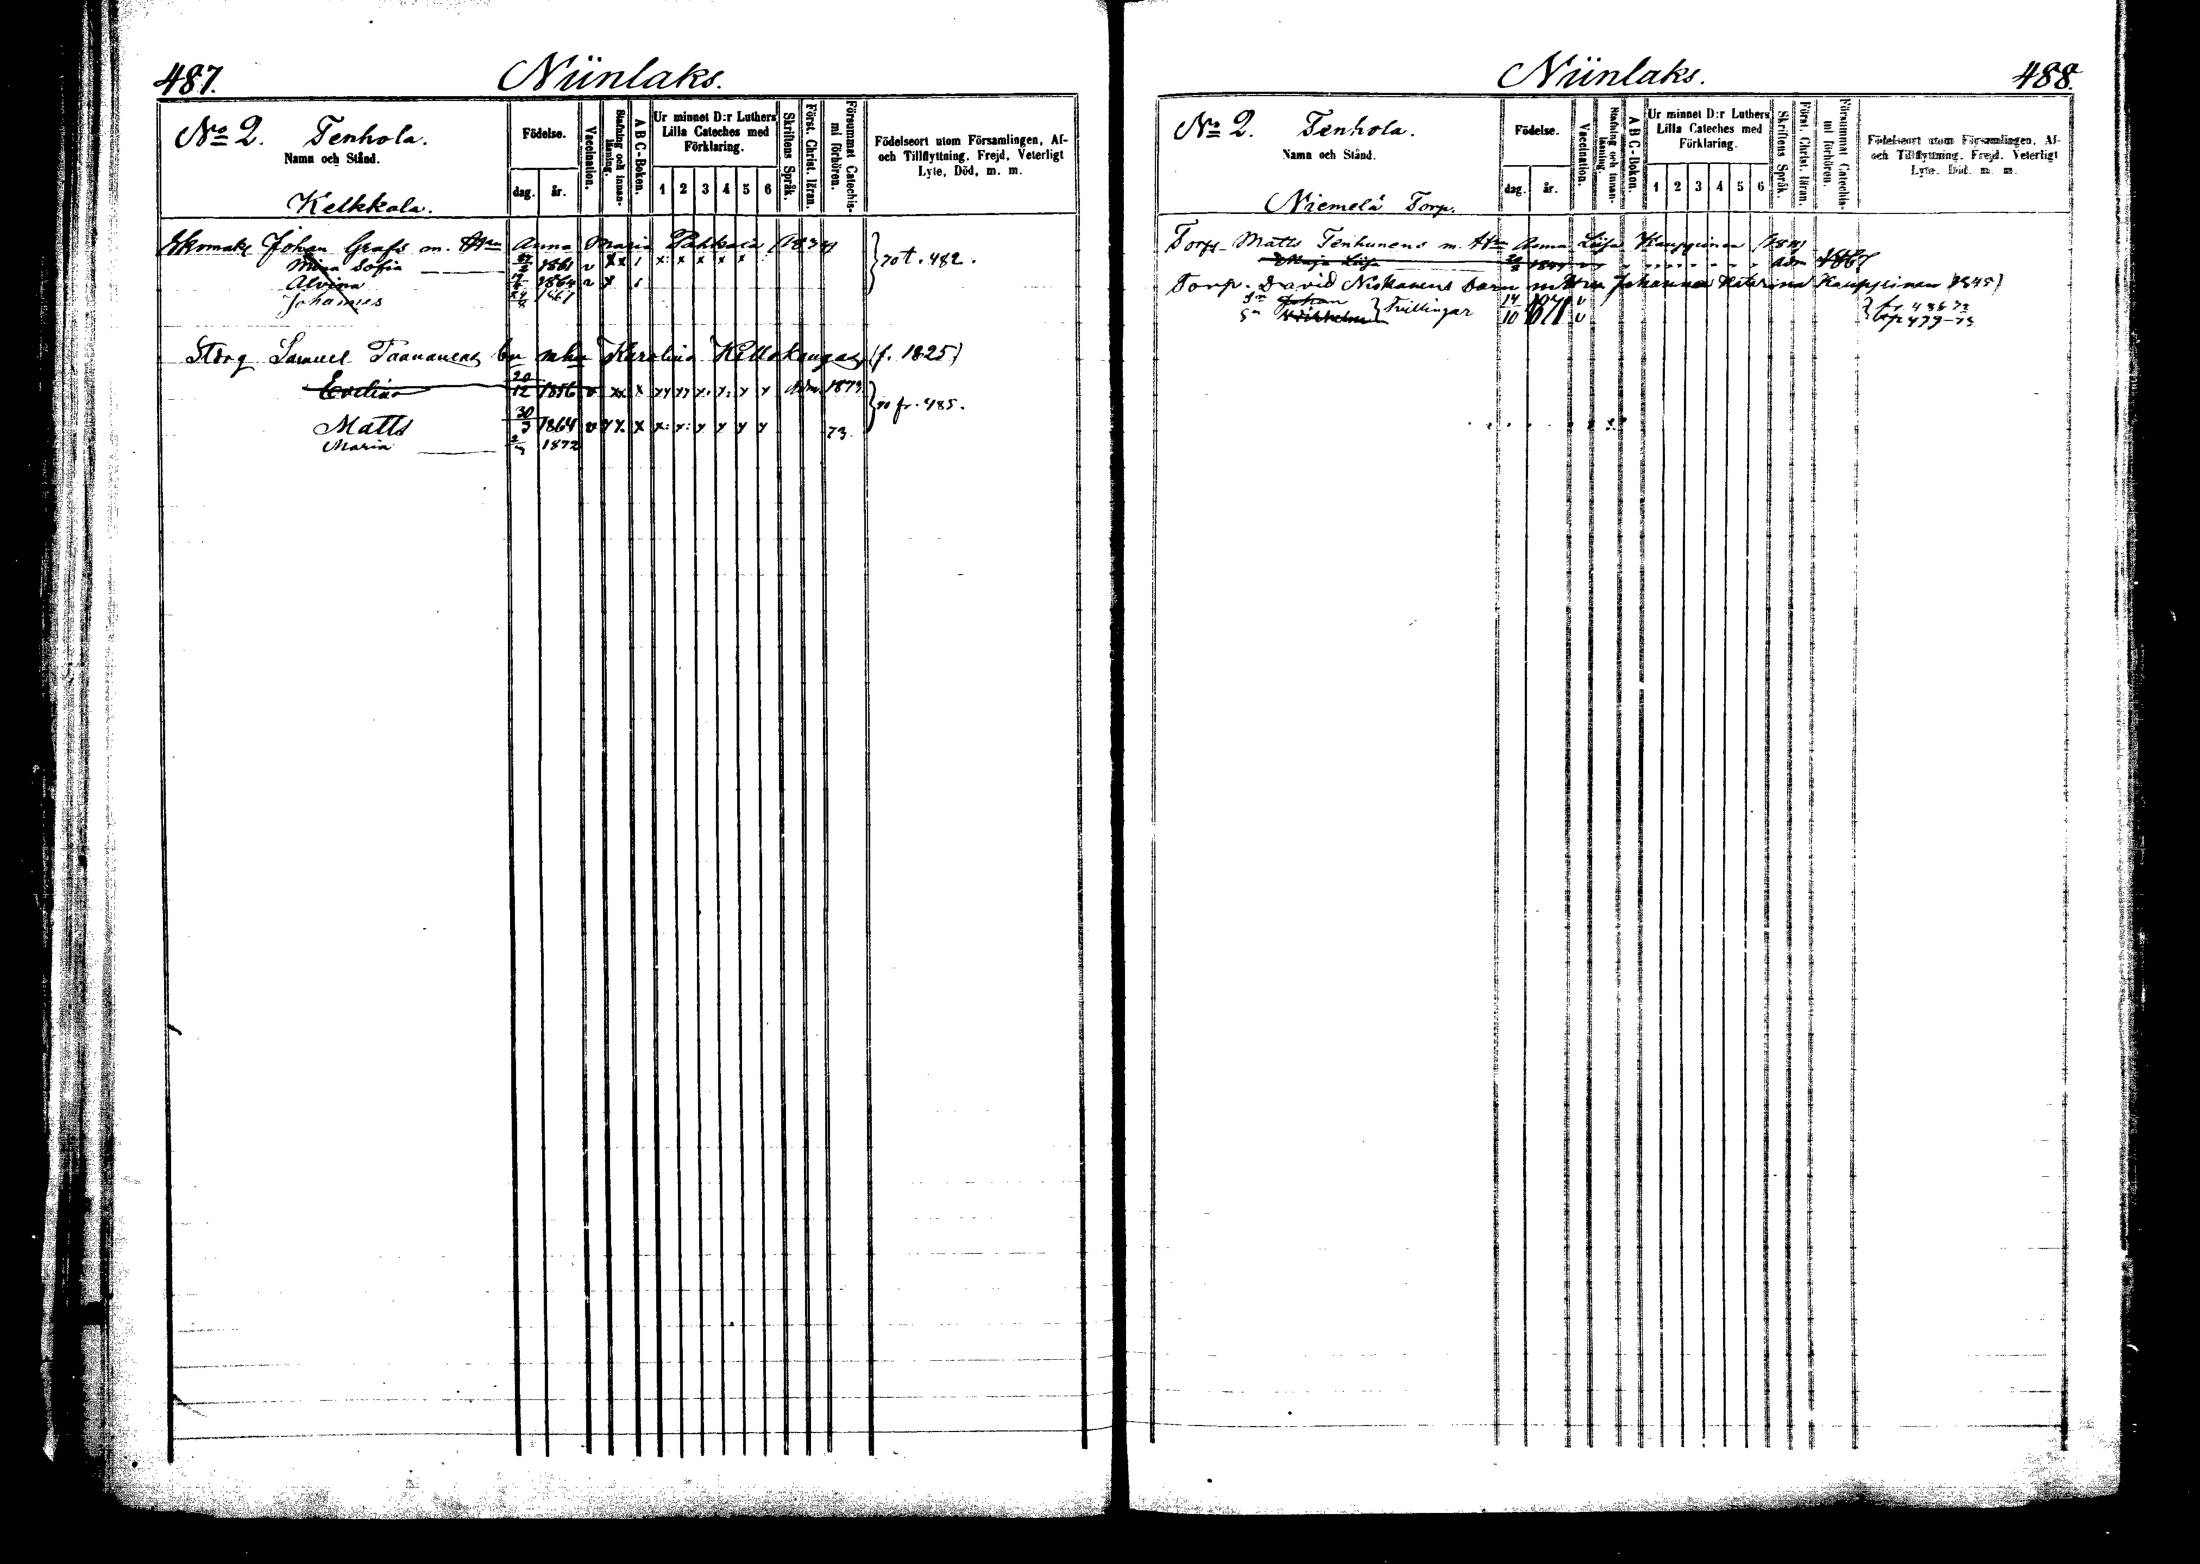 487. Niinlaks.
No 2. Tenhola.
Namn och Stånd.
Kelkkala.
Födelse.
dag. år.
Vaccination.
Stafning och innanläsning.
A B C-Boken.
Ur minnet D:r Luthers Lilla Cateches med Förklaring.
1 2 3 4 5 6
Skriftens Språk.
Först. Christ. läran.
Försummat Catechismi förhören.
Födelseort utom Församlingen, Af- och Tillflyttning, Frejd, Veterligt Lyte, Död, m. m.
Johan Grafs m. Anna Maria Pakkala
Mina Sofia 1861 v x x x x x x
Alvina 1864 v x
Johannes 1867
70 t. 482.
Samuel Taananens bn mhu Karolina Killokangas (f. 1825)
Evelina 20/12 1856 v xx x Adm. 1873
Matts 30/3 1864 v 73
70 fr. 485.
Maria 1872
Niinlaks. 488.
No 2. Tenhola.
Namn och Stånd.
Niemelä Torp.
Födelse.
dag. år.
Vaccination.
Stafning och innanläsning.
A B C-Boken.
Ur minnet D:r Luthers Lilla Cateches med Förklaring.
1 2 3 4 5 6
Skriftens Språk.
Först. Christ. läran.
Försummat Catechismi förhören.
Födelseort utom Församlingen, Af- och Tillflyttning, Frejd, Veterligt Lyte, Död, m. m.
Torp. Matts Tenhunens m. Hu Anna Lisa Kauppinen
Maja Lisa Adm 1867
Torp. David Niskanens barn m Hu Johanna Katarina Kauppinen 1845)
Sn Johan } Tvillingar 14/10 v
Sn Wilhelm v